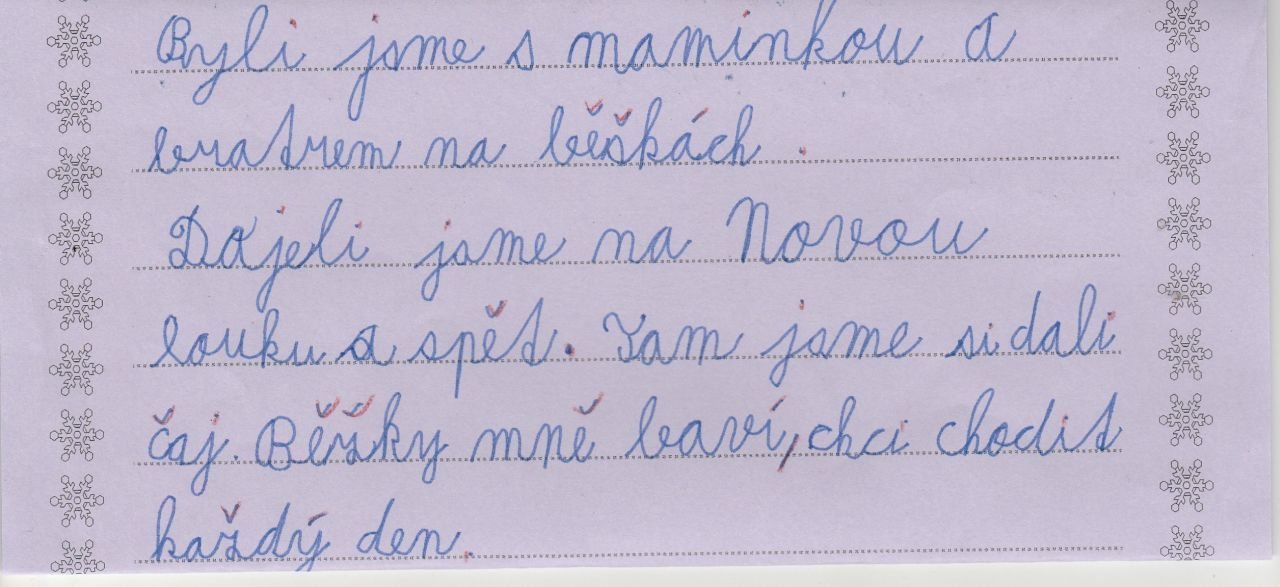 Byli jsme s maminkou a
bratrem na běškách.
Dojeli jsme na Novou
louku a spět. Tam jsme si dali
čaj. Běžky mně baví, chci chodit
každý den.